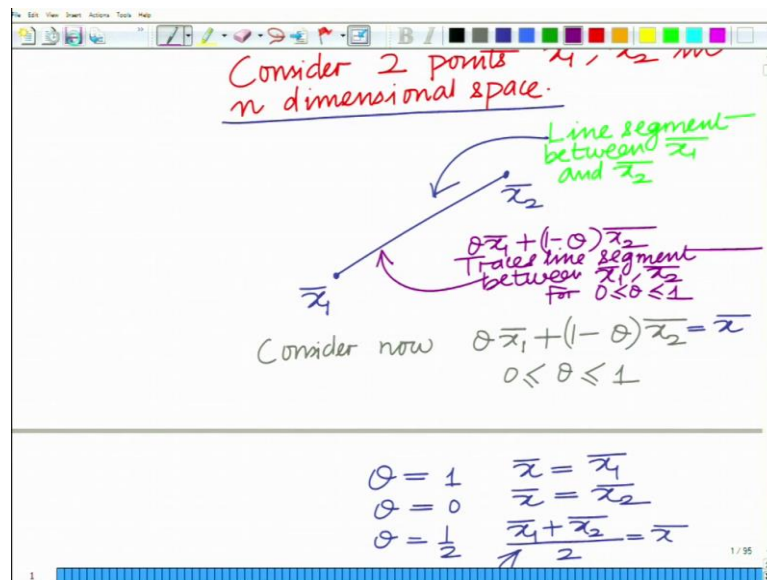 File Edit View Insert Actions Tools Help
Consider 2 points x̅₁, x̅₂ in
n dimensional space.
Line segment
between x̅₁
and x̅₂
x̅₂
θx̅₁ + (1-θ)x̅₂
Traces line segment
between x̅₁, x̅₂
for 0≤θ≤1
x̅₁
Consider now θx̅₁ + (1-θ)x̅₂ = x̅
0 ≤ θ ≤ 1
θ = 1 x̅ = x̅₁
θ = 0 x̅ = x̅₂
θ = 1/2 (x̅₁ + x̅₂)/2 = x̅
1 / 95
1